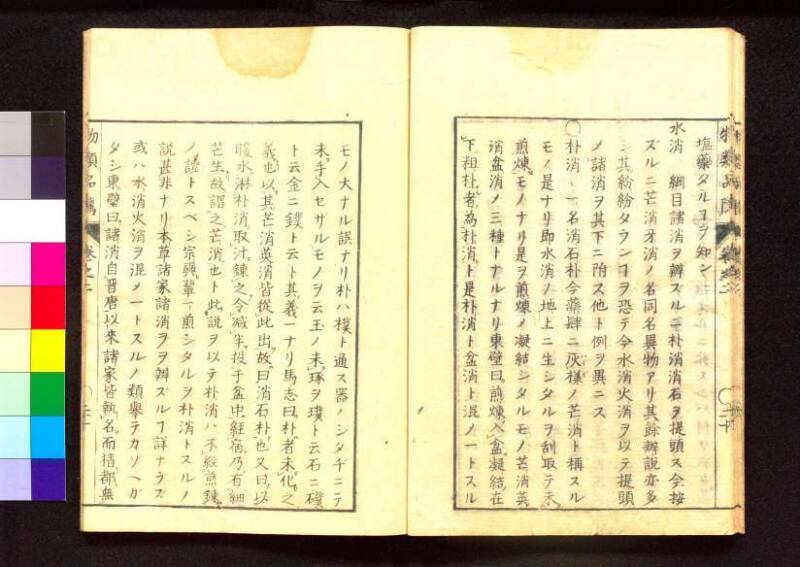 塩藥タルコヲ知ン
水消 綱目諸消ヲ辨ズルニ朴消消石ヲ提頭ス今按
ズルニ芒消牙消ノ名同名異物アリ其餘辨説亦多
シ其紛紛タランコヲ恐テ今水消火消ヲ以テ提頭
メ諸消ヲ其下ニ附ス他ト例ヲ異ニス
○朴消 一名消石朴今藥肆ニ灰様ノ芒消ト稱スル
モノ是ナリ即水消ノ地上ニ生シタルヲ刮取テ未
煎煉モノナリ是ヲ煎煉ノ凝結シタルモノ芒消英
消盆消ノ三種トナルナリ東璧曰煎煉入盆凝結在
下粗朴者為朴消ト是朴消ト盆消ト混メ一トスル
モノ大ナル誤ナリ朴ハ樸ト通ス器ノシタヂニテ
未手入セザルモノヲ云玉ノ未琢ヲ璞ト云石ニ礦
ト云金ニ鏷ト云ト其義一ナリ馬志曰朴者未化之
義也以其芒消英消皆從此出故曰消石朴也又曰以
暖水淋朴消取汁錬之令減半投于盆中經宿乃有細
芒生故謂之芒消也ト此説ヲ以テ朴消ハ不經煎錬
ノ謂トスベシ宗奭輩一煎シタルヲ朴消トスルノ
説甚非ナリ本草諸家諸消ヲヲ辨ズルコ詳ナラズ
或ハ水消火消ヲ混メ一トスルノ類擧テカソヘガ
タシ東璧曰諸消自晋唐以来諸家皆執名而猜都無
物類品隲 巻之二